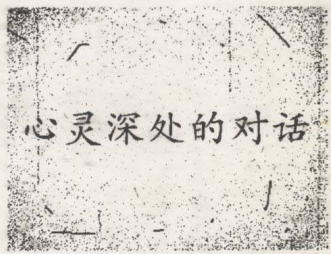 心灵深处的对话